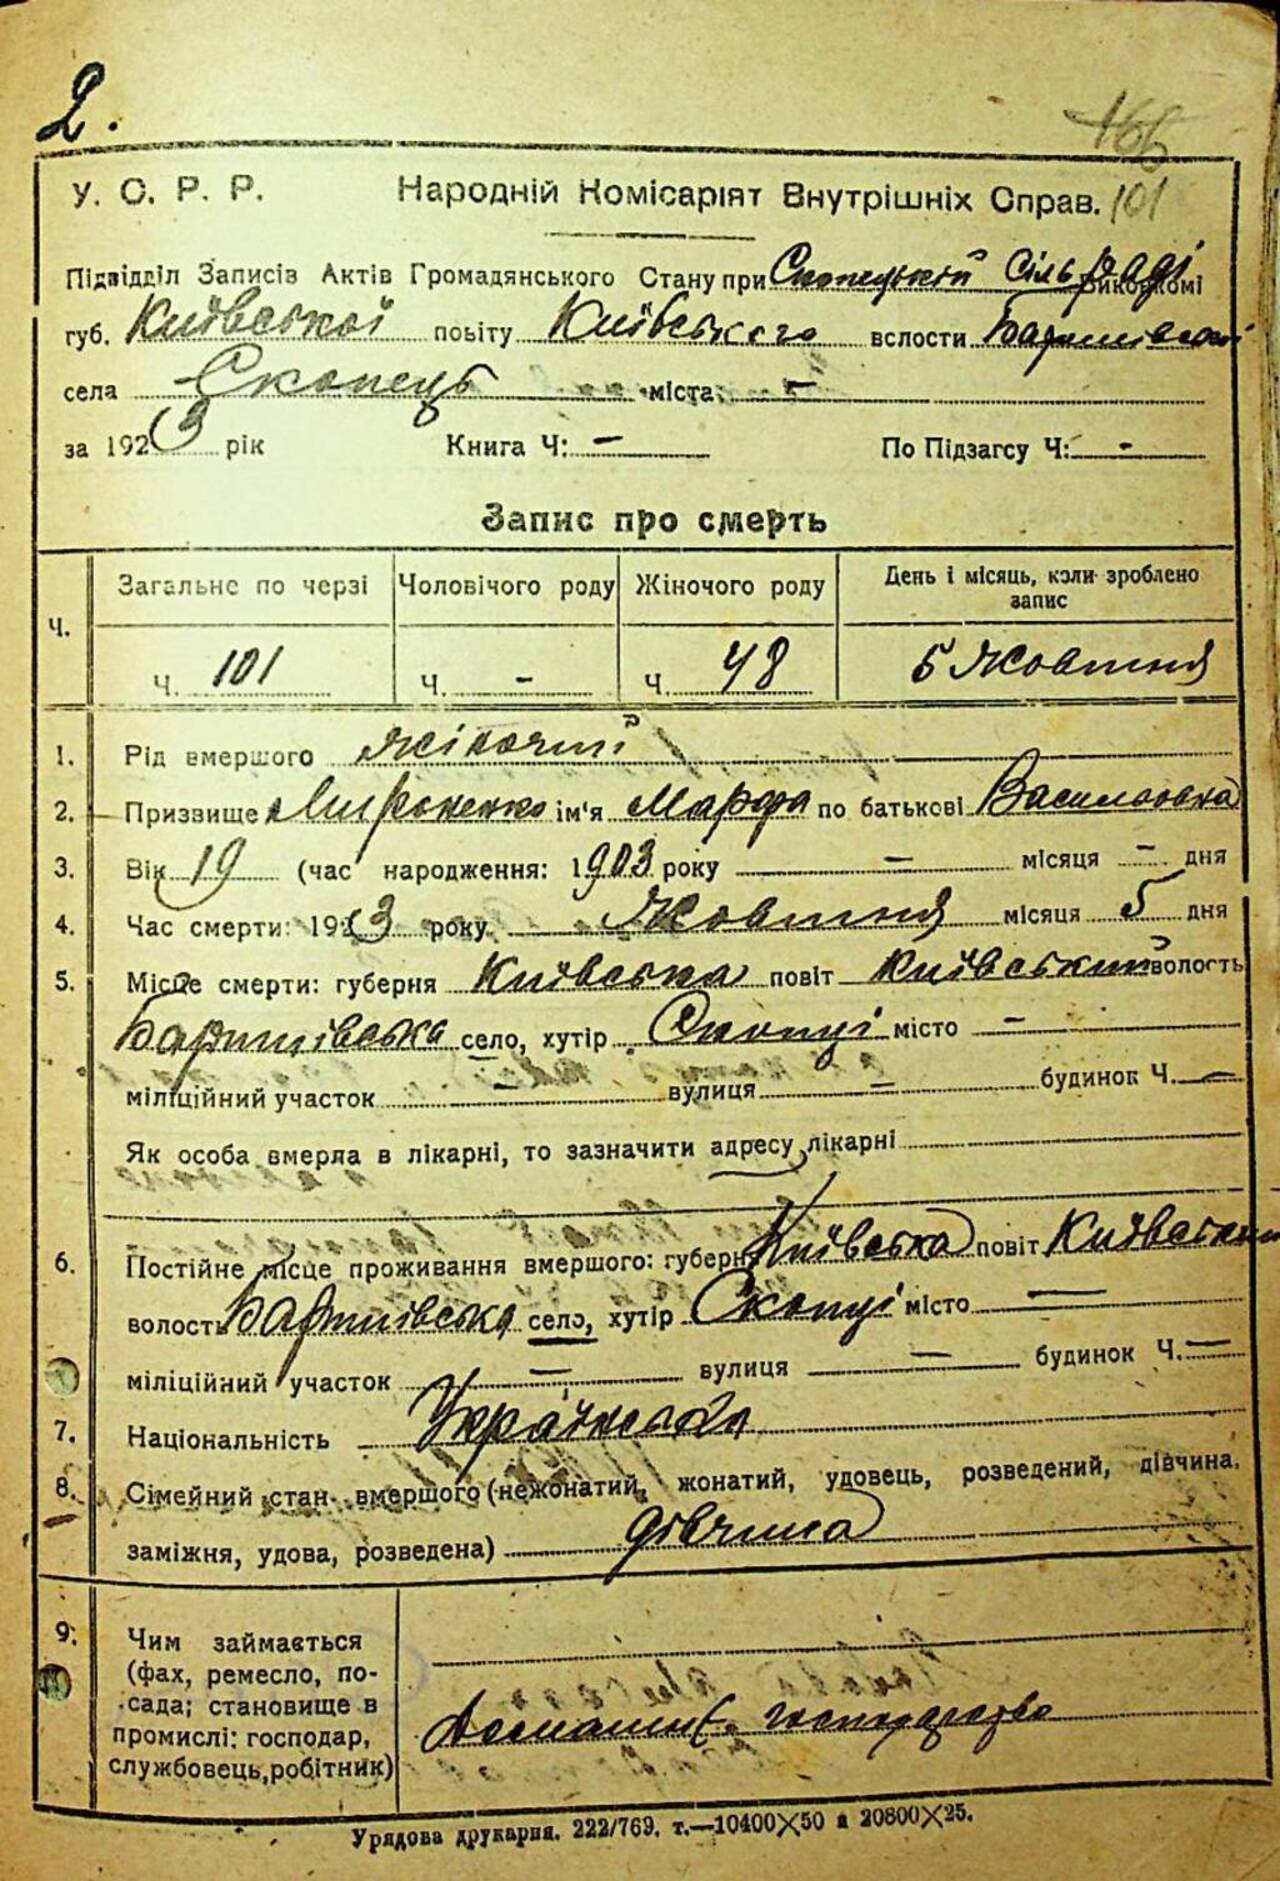 2.
166
У. С. Р. Р. Народній Комісаріят Внутрішніх Справ. 101
Підвідділ Записів Актів Громадянського Стану при Скопецькій Сільраді виконкомі
губ. Київської повіту Київського волости Баришівської
села Скопець міста: –
за 1923 рік Книга Ч: – По Підзагсу Ч: -
Запис про смерть
Ч. Загальне по черзі Чоловічого роду Жіночого роду День і місяць, коли зроблено запис
Ч. 101 Ч. - Ч. 48 5 Жовтня
1. Рід вмершого жіночий
2. Призвище Мироненко ім'я Марфа по батькові Василовна
3. Вік 19 (час народження: 1903 року – місяця – дня
4. Час смерти: 1923 року Жовтня місяця 5 дня
5. Місце смерти: губерня Київська повіт Київський волость
Баришівська село, хутір Скопці місто –
міліційний участок – вулиця – будинок Ч. –
Як особа вмерла в лікарні, то зазначити адресу лікарні
6. Постійне місце проживання вмершого: губерн Київська повіт Київський
волость Баришівська село, хутір Скопці місто —
міліційний участок — вулиця — будинок Ч. —
7. Національність Українська
8. Сімейний стан вмершого (нежонатий, жонатий, удовець, розведений, дівчина,
заміжня, удова, розведена) дівчина
9. Чим займається
(фах, ремесло, по-
сада; становище в
промислі: господар, Домашнє господарство
службовець, робітник)
Урядова друкарня. 222/769. т.—10400×50 и 20800×25.